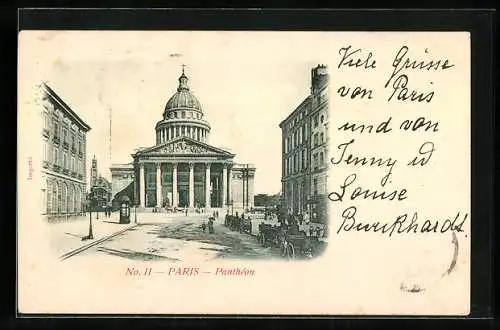 Viele Grüsse
von Paris
und von
Jenny u̅d
Louise
Burckhardt.
Importé
No. 11 — PARIS — Panthéon